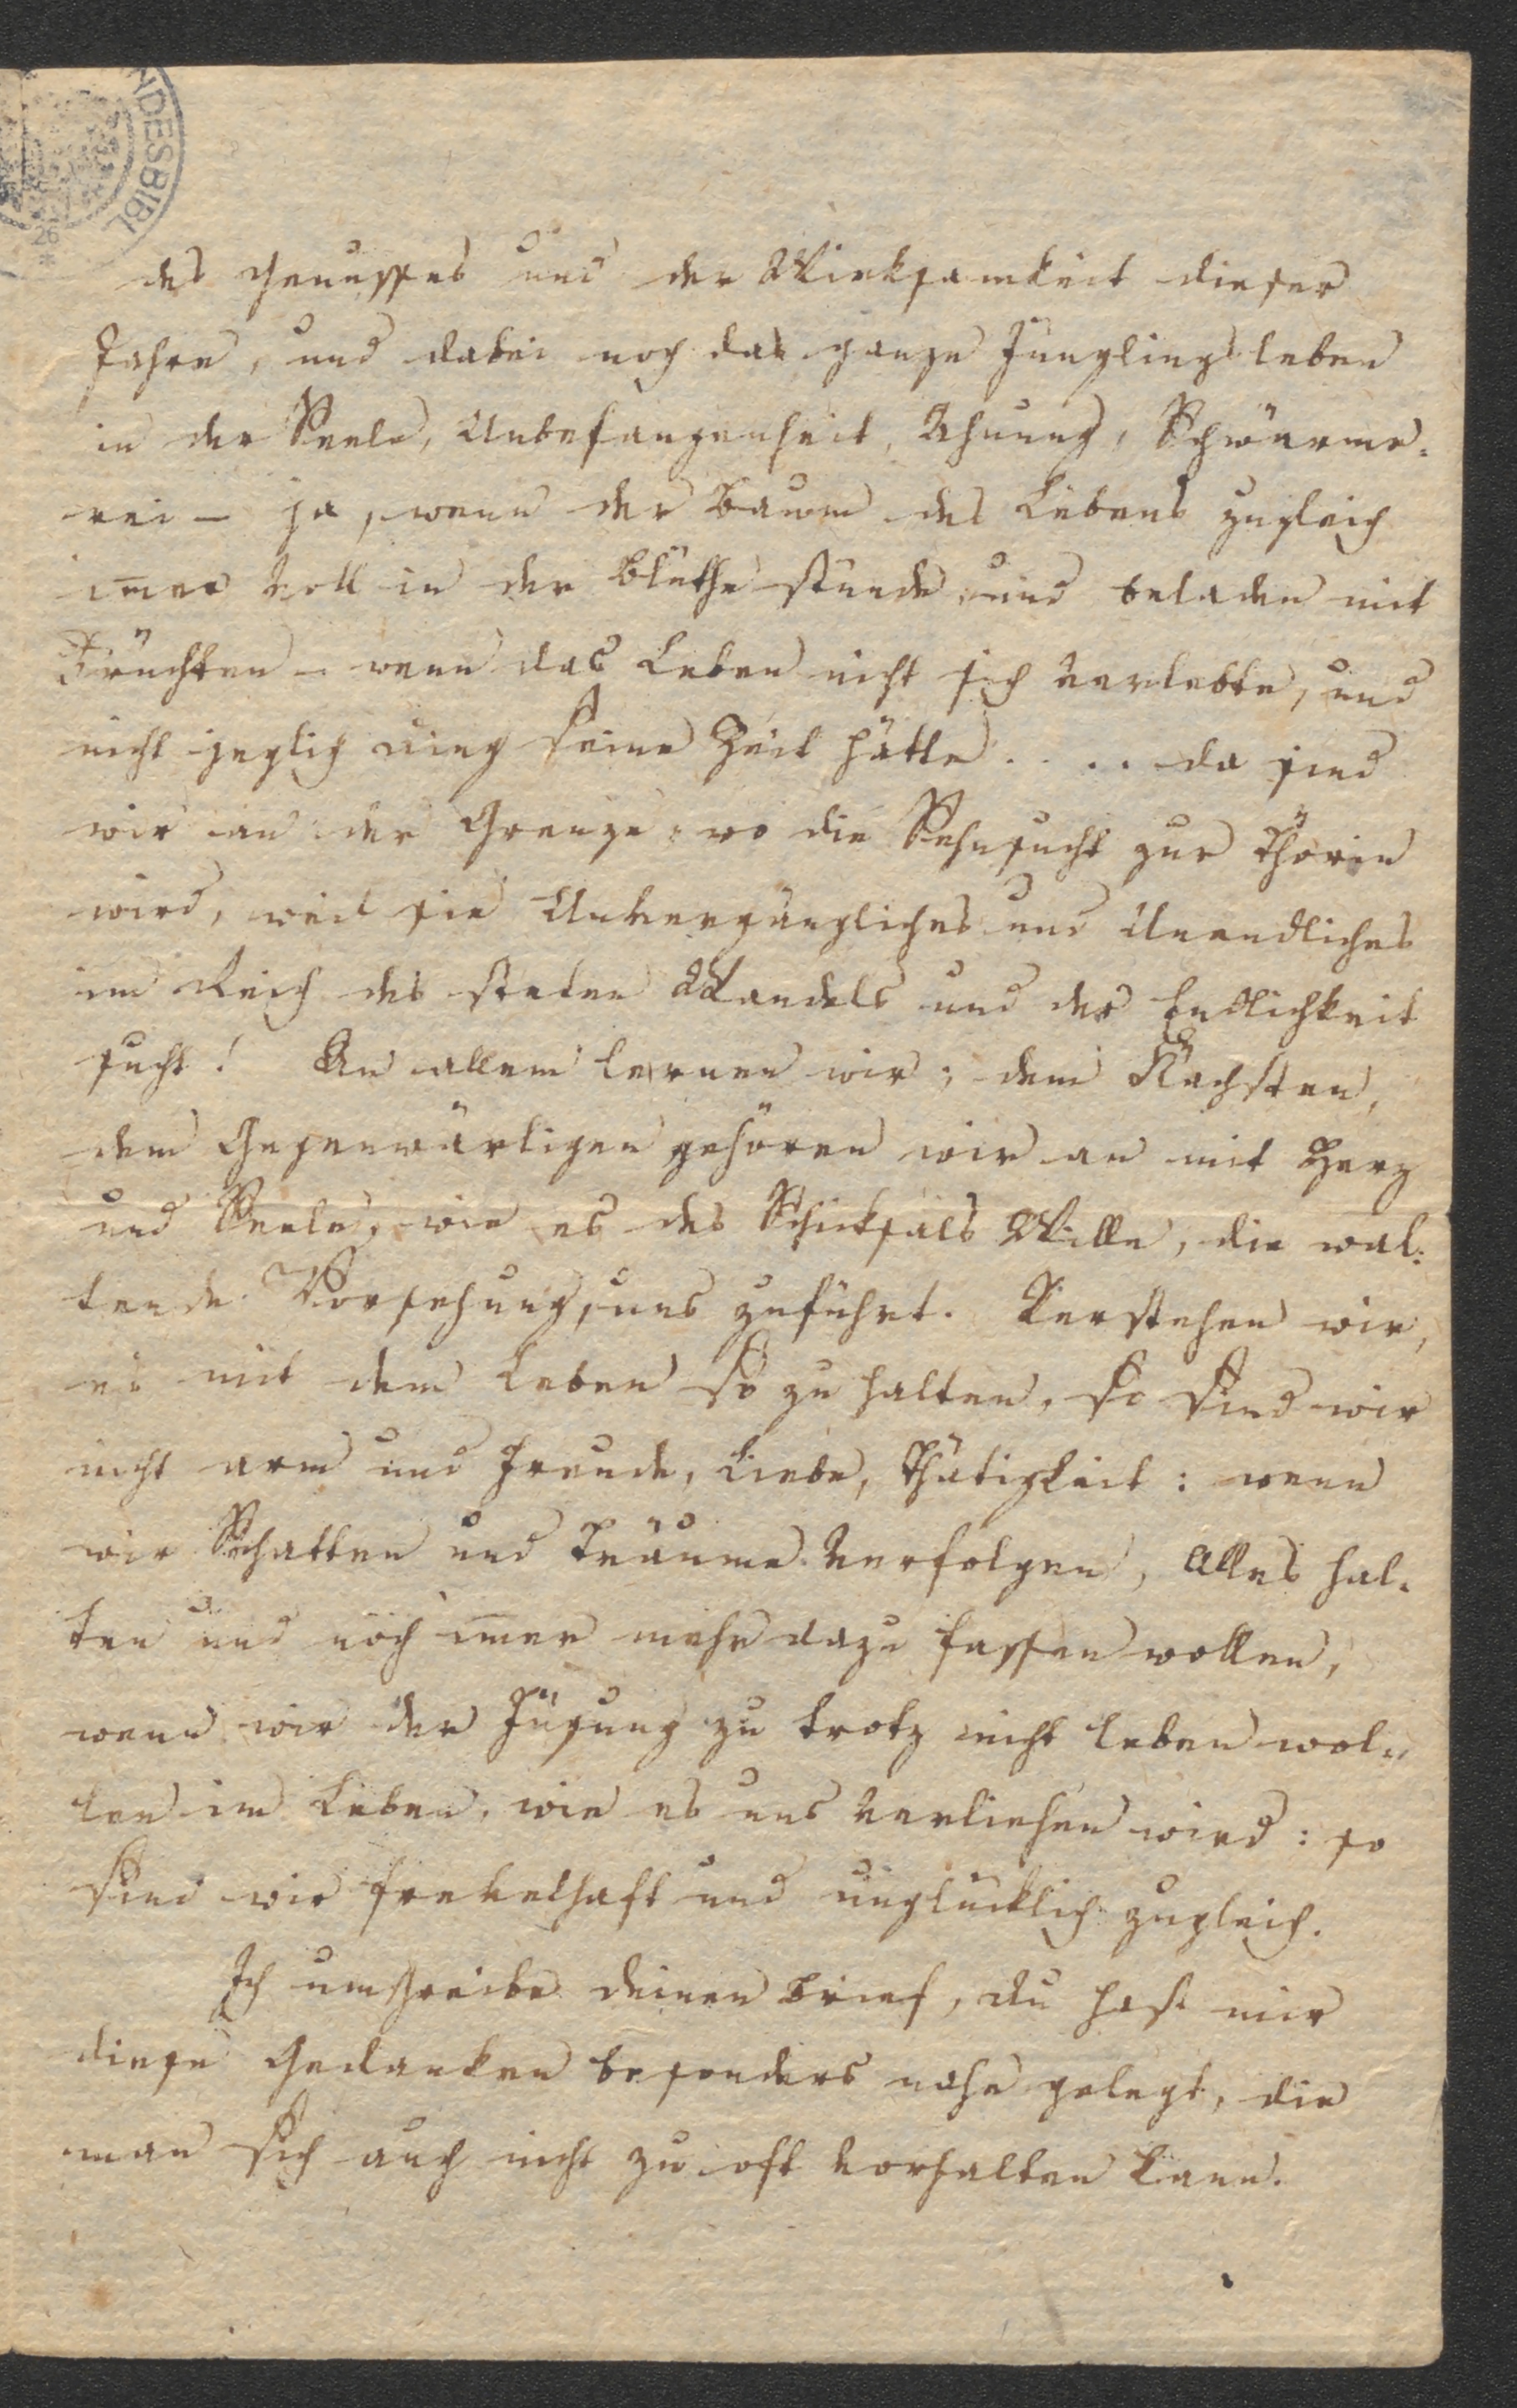 NDESBIBL
26
des Genusses und der Wirksamkeit dieser
Jahre, und dabei noch das ganze Jünglingsleben
in der Seele, Unbefangenheit, Ahnung, Schwärme-
rei – ja, wenn der Baum des Lebens zugleich
im̅er voll in der Blüthe stünde und beladen mit
Früchten – wenn das Leben nicht sich verlebte, und
nicht jeglich Ding seine Zeit hätte .... da sind
wir an der Grenze, wo die Sehnsucht zur Thörin
wird, weil sie Unvergängliches und Unendliches
im Reich des steten Wandels und der Endlichkeit
sucht! An allem lernen wir; dem Nächsten,
dem Gegenwärtigen gehören wir an mit Herz
und Seele, wie es des Schicksals Wille, die wal-
tende Vorsehung, uns zuführt. Verstehen wir,
es mit dem Leben so zu halten, so sind wir
nicht arm und Freude, Liebe, Thätigkeit: wenn
wir Schatten und Träume verfolgen, Alles hal-
ten und noch im̅er mehr dazu fassen wollen,
wenn wir der Fügung zu trotz nicht leben wol-
len im Leben, wie es uns verliehen wird: so
sind wir frevelhaft und unglücklich zugleich.
Ich umschreibe deinen Brief, du hast mir
diese Gedanken besonders nahe gelegt, die
man sich auch nicht zu oft vorhalten kann.